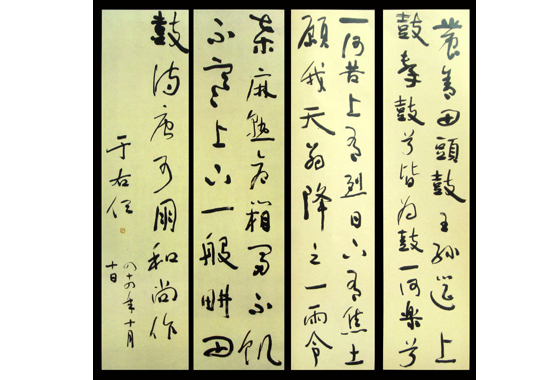 農舍田頭鼓王孫筵上
鼓擊鼓兮皆為鼓一何樂兮
一何苦上有烈日下有焦土
願我天翁降之一雨令
桑麻熟倉箱富不飢
不寒上下一般耕田
鼓詩唐可朋和尚作
于右任
年十月
十日